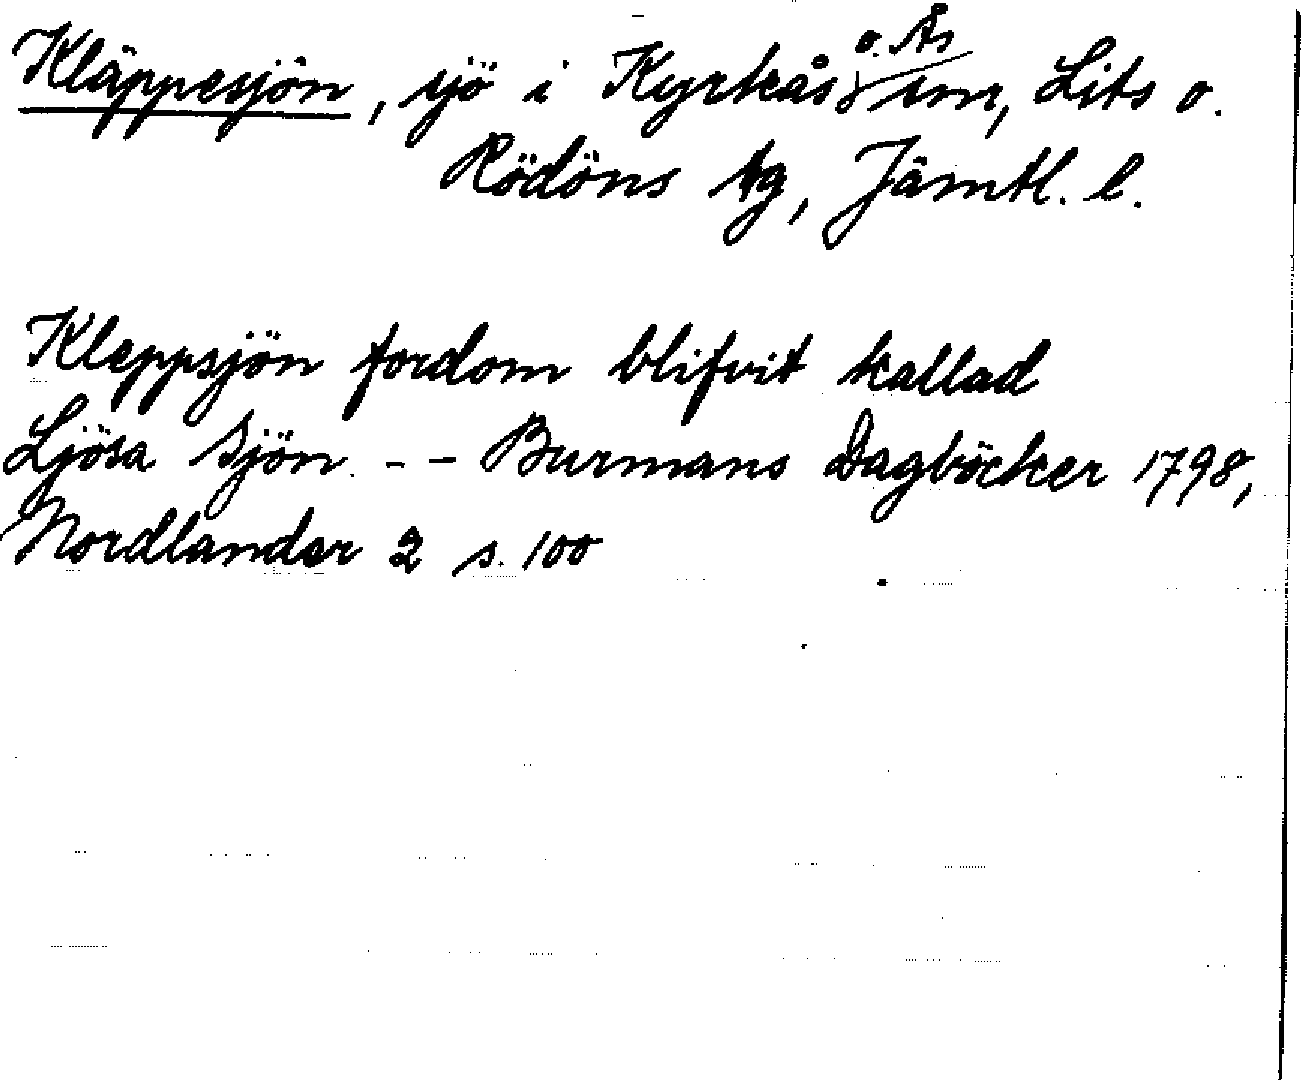 Kläppesjön, sjö i Kyrkås o. Ås snr, Lits o.
Rödöns tg, Jämtl. l.
Kleppsjön fordom blifvit kallad
Ljösa Sjön. - - Burmans Dagböcker 1798,
Nordlander 2 s. 100